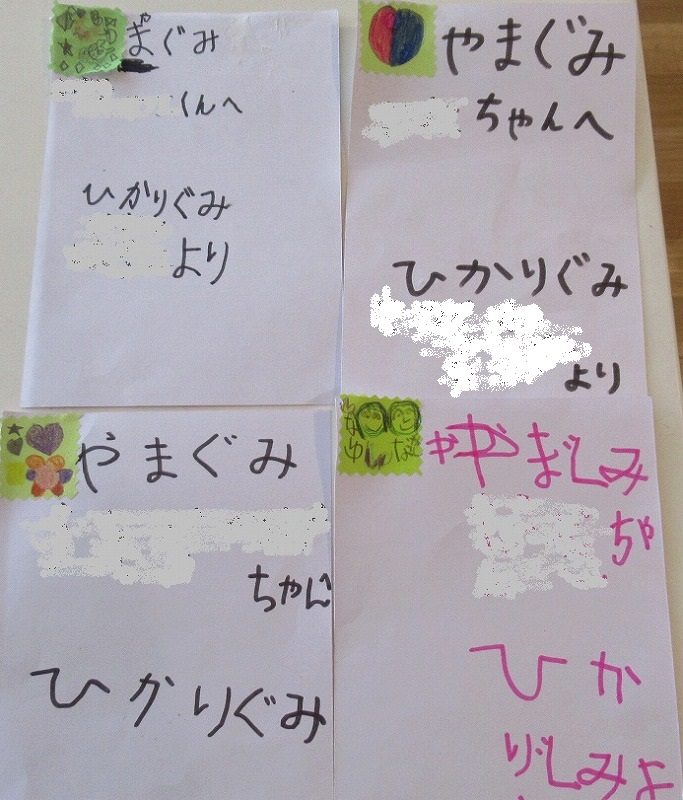 やまぐみ
くんへ
ひかりぐみ
より
やまぐみ
ちゃんへ
ひかりぐみ
より
やまぐみ
ちゃん
ひかりぐみ
やまぐみ
ちゃ
ひか
りぐみよ